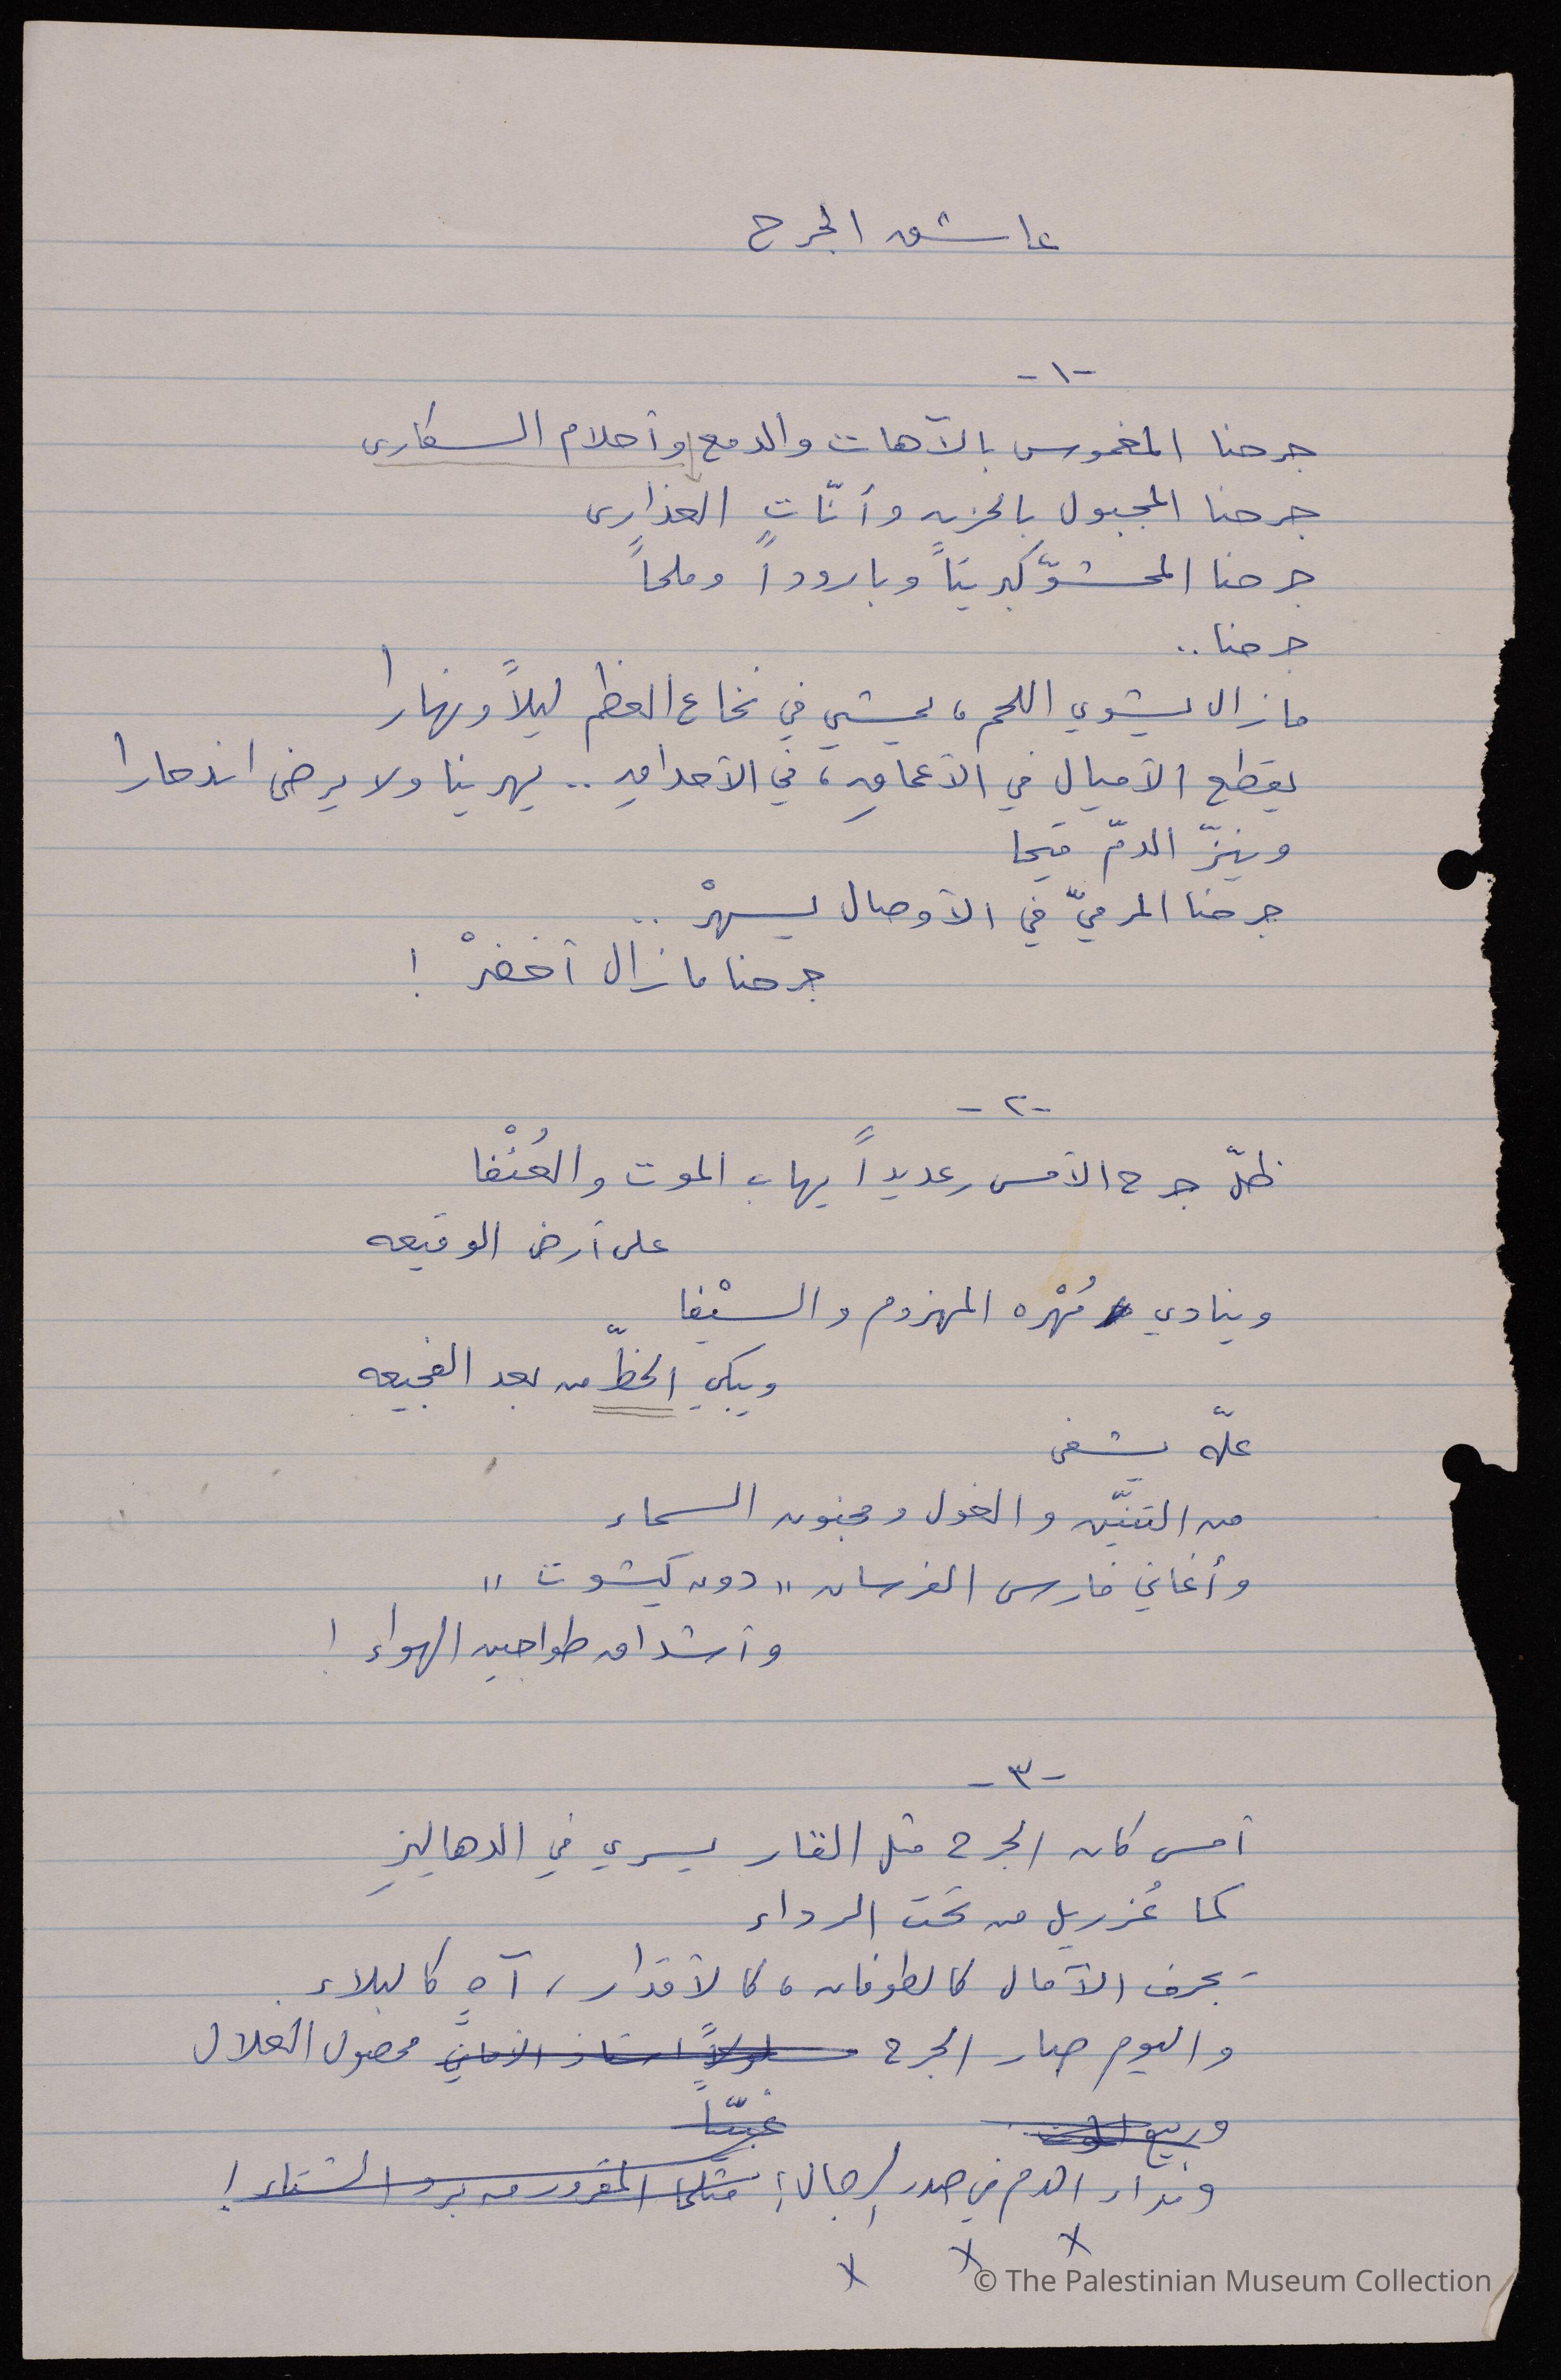 عاشق الجرح
-١-
جرحنا المغموس بالآهات والدمع وأحلام السكارى
جرحنا المجبول بالحزن وأنّاتِ العذارى
جرحنا المحشوّ كبريتاً وباروداً وملحاً
جرحنا..
مازال يشوي اللحم، يمشي في نخاع العظم ليلاً ونهارا
يقطع الأميال في الأعماقِ، في الأحداقِ.. يهرينا ولا يرضى اندحارا
وينزّ الدمّ قيحا
جرحنا المرميّ في الأوصال يسهرْ..
جرحنا مازال أخضرْ !
-٢-
ظلّ جرح الأمس رعديداً يهاب الموت والعُنْفا
على أرض الوقيعه
وينادي مُهْره المهزوم والسيْفا
ويبكي الحظّ من بعد الفجيعه
علّه يشفى
من التنّين والغول ومجنون السماء
وأغاني فارس الفرسان "دون كيشوت"
وأشداق طواحين الهواء !
-٣-
أمس كان الجرح مثل الفار يسري في الدهاليزِ
كما عُزريل من تحت الرداء
يجرف الآمال كالطوفان، كالأقدار، آهٍ كالبلاء.
واليوم صار الجرح محصول الغلال
وربيع
ونداء الدم في صدر الرجال! مثلما المقرور من برد الشتاء!
x x x
© The Palestinian Museum Collection